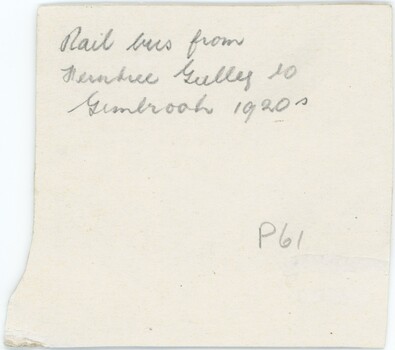 Rail bus from
Ferntree Gulley to
Gembrook 1920s
P61